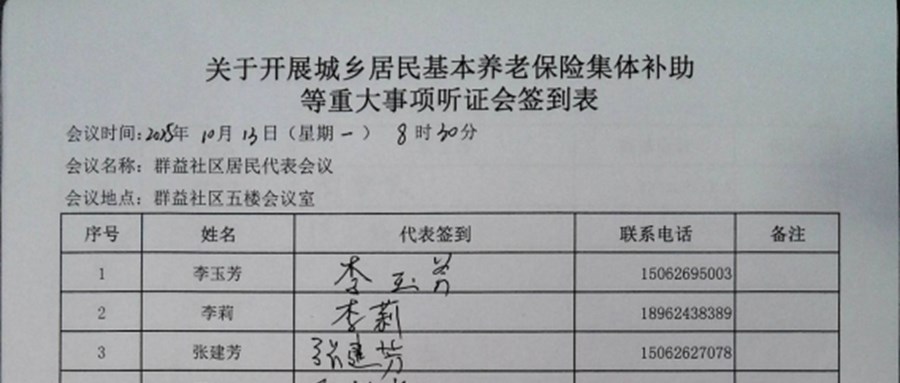 关于开展城乡居民基本养老保险集体补助
等重大事项听证会签到表
会议时间:2025年 10月 13日（星期一） 8时30分
会议名称：群益社区居民代表会议
会议地点：群益社区五楼会议室
序号 姓名 代表签到 联系电话 备注
1 李玉芳 李玉芳 15062695003
2 李莉 李莉 18962438389
3 张建芳 张建芳 15062627078